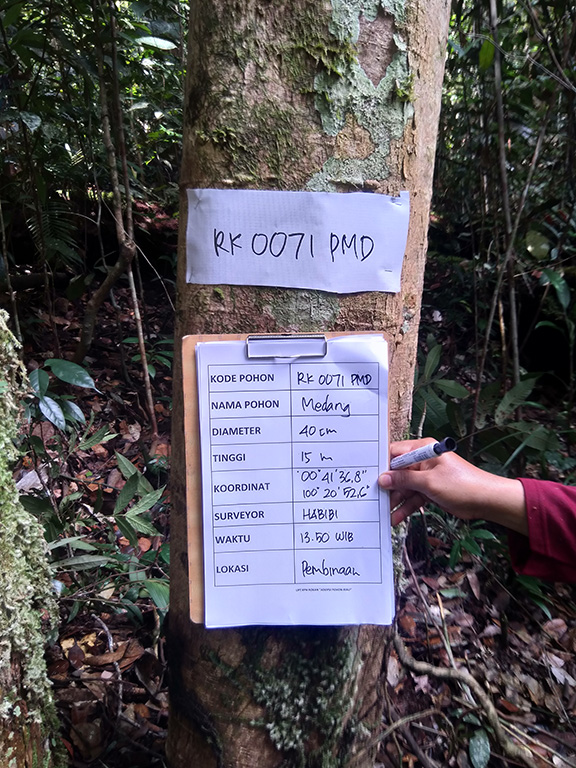 RK 0071 PMD
KODE POHON RK 0071 PMD
NAMA POHON Medang
DIAMETER 40 cm
TINGGI 15 m
KOORDINAT 00° 41' 36,8"
100° 20' 52,6"
SURVEYOR HABIBI
WAKTU 13.50 WIB
LOKASI Pembinaan